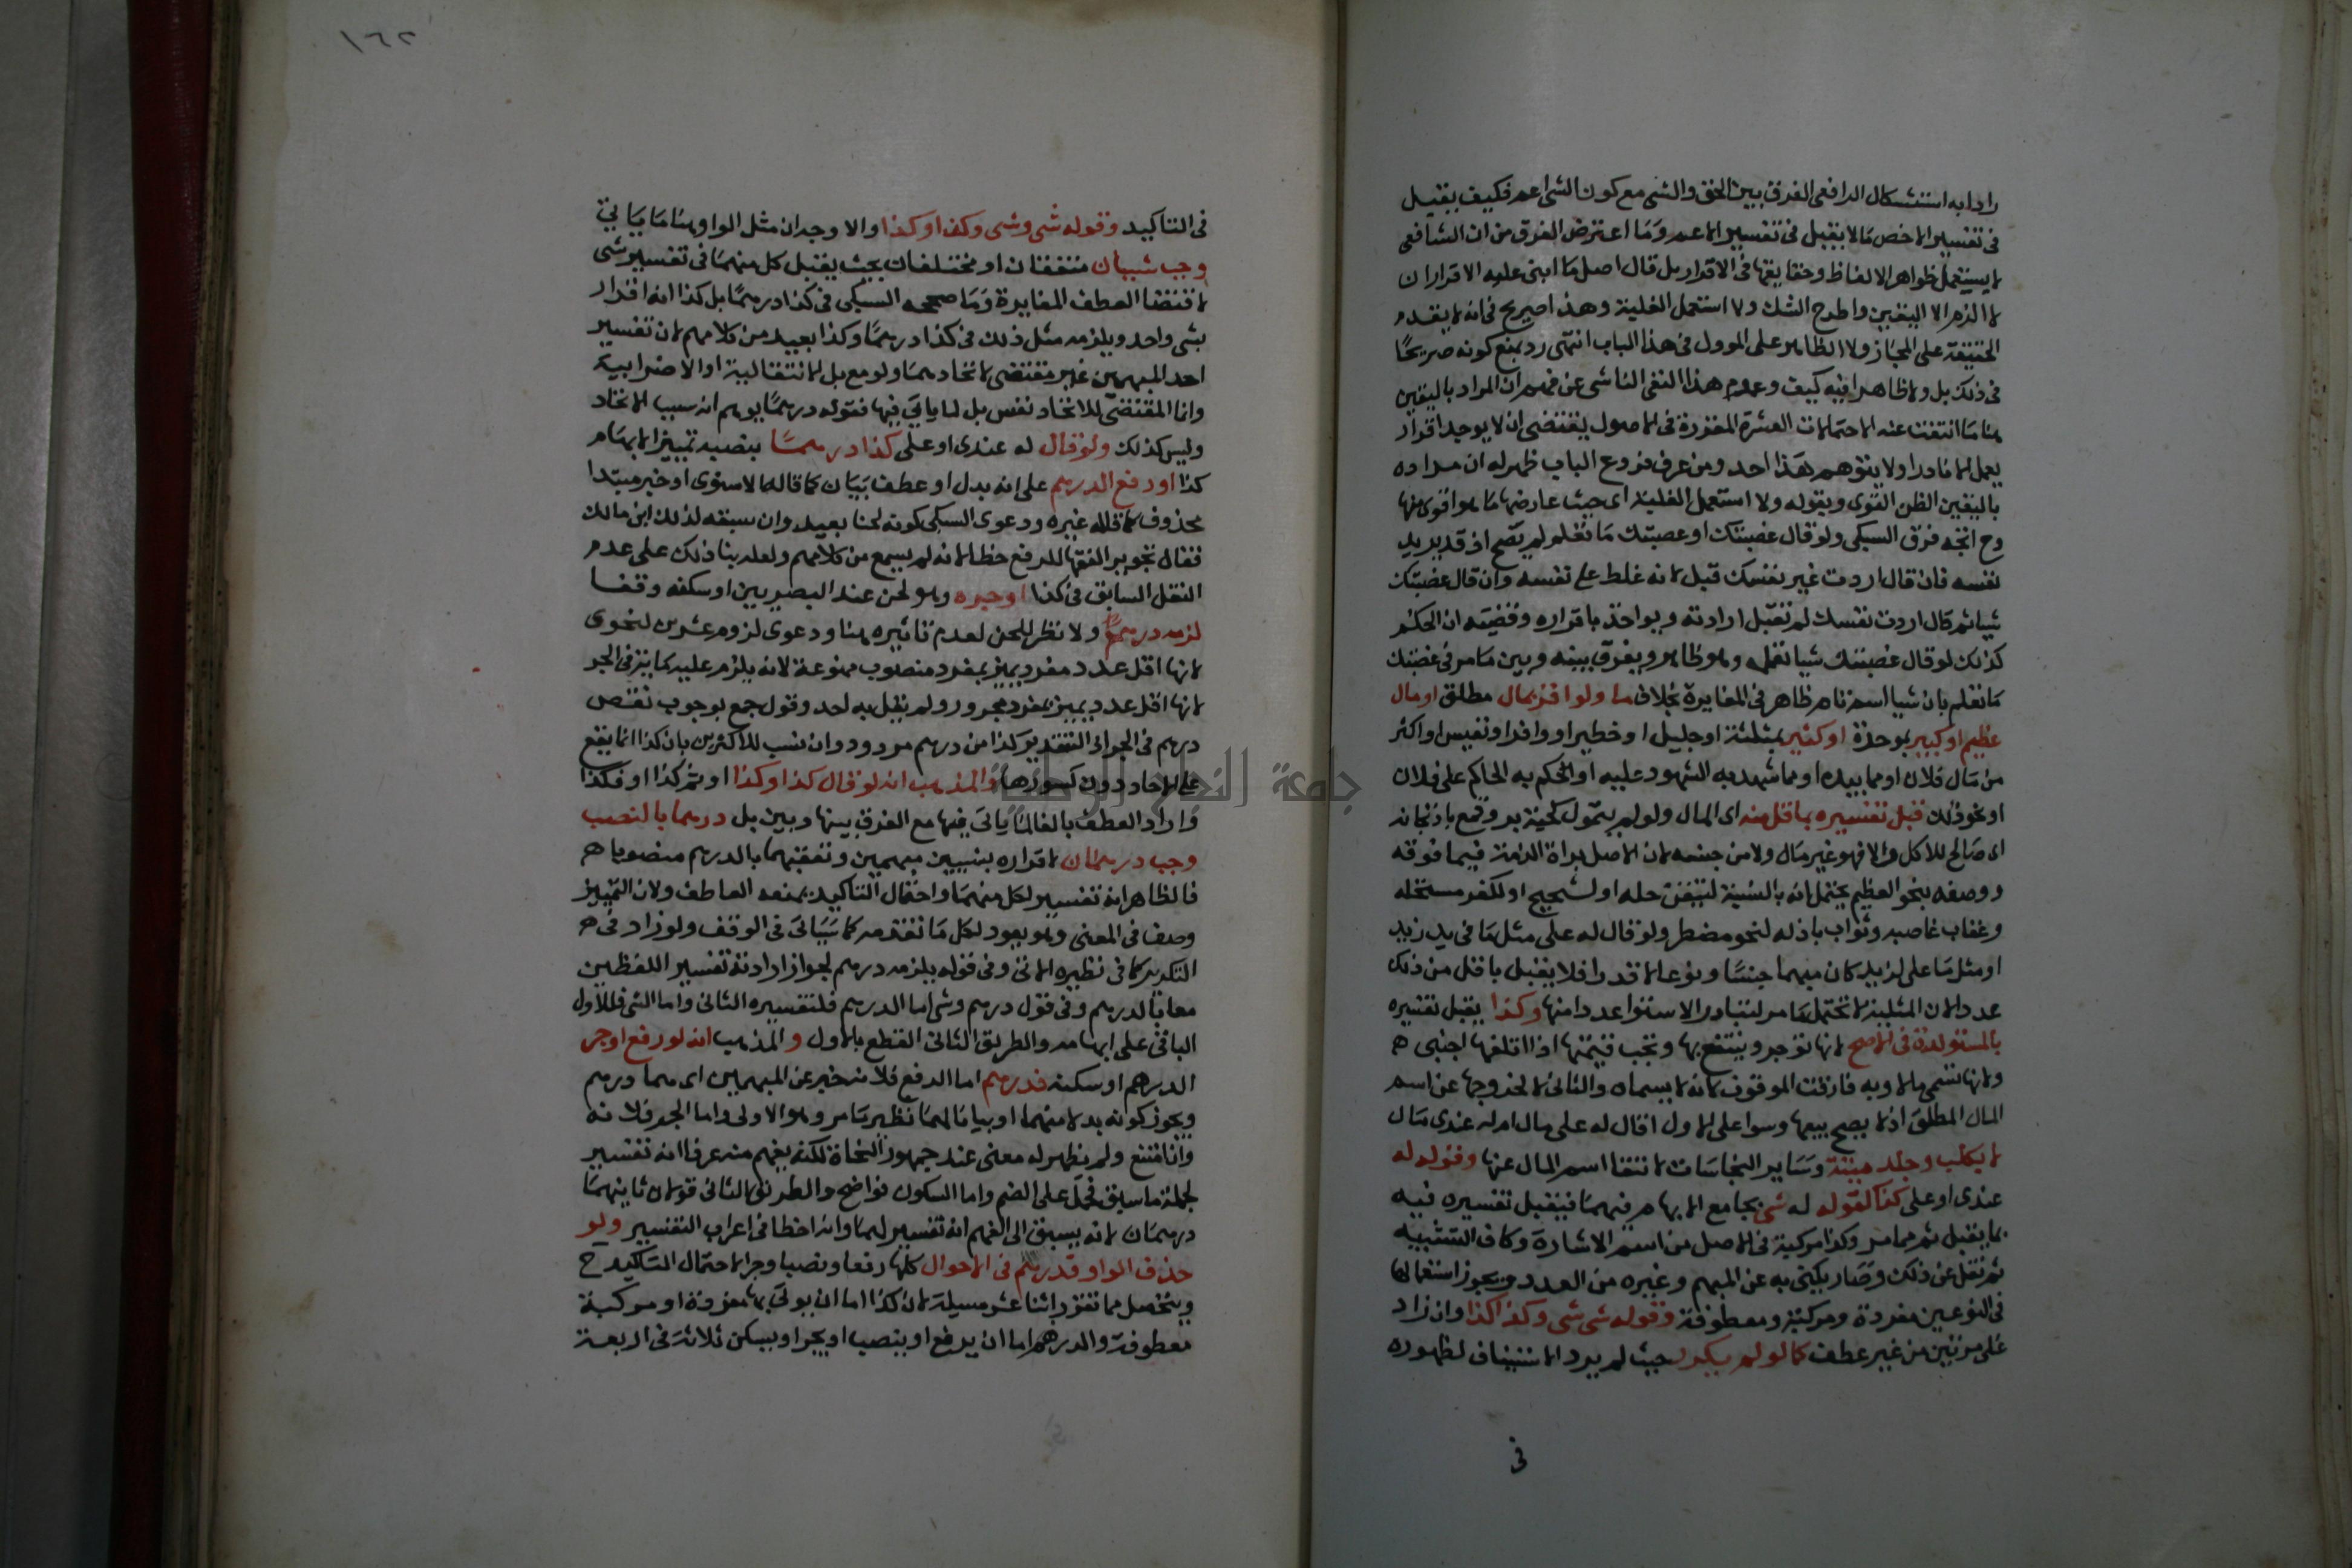 رادا به استشكال الرافعى الفرق بين الحق والشى مع كون الشى اعم فكيف يقبل
فى تفسير الاخص مالا يقبل فى تفسير الاعم وما اعترض الفرق من ان الشافعى
لا يستعمل ظواهر الالفاظ وحقايقها فى الاقرار بل قال اصل ما ابنى عليه الاقرار ان
لا الزم الا اليقين واطرح الشك ولا استعمل الغلبة وهذا صريح فى انه لا يقدم
الحقيقة على المجاز ولا الظاهر على الموول فى هذا الباب انتهى رد بمنع كونه صريحا
فى ذلك بل ولا ظاهرا فيه كيف وعموم هذا النفى الناشى عن فهم ان المراد باليقين
هنا ما انتفت عنه الاحتمالات العشرة المقررة فى الاصول يقتضى ان لا يوجد اقرار
يعمل الا نادرا ولا يتوهم هذا احد ومن عرف فروع الباب ظهر له ان مراده
باليقين الظن القوى وبقوله ولا استعمل الغلبة اى حيث عارضها ما هو اقوى منها
وح اتجه فرق السبكى ولو قال غصبتك او غصبتك ما تعلم لم يصح اذ قد يريد
نفسه فان قال اردت غير نفسك قبل لانه غلط على نفسه وان قال غصبتك
شيا ثم قال اردت نفسك لم تقبل ارادته ويواخذ باقراره وقضيته ان الحكم
كذلك لو قال غصبتك شيا تعلمه وهو ظاهر ويفرق بينه وبين ما مر فى غصبتك
ما تعلم بان شيا اسم تام ظاهر فى المغايرة بخلاف ما ولو اقر بمال مطلق او مال
عظيم او كبير بموحدة او كثير بمثلثة او جليل او خطير او وافر او نفيس او اكثر
من مال فلان او مما بيده او مما شهد به الشهود عليه او الحكم به الحاكم على فلان
او نحو ذلك قبل تفسيره بما قل منه اى المال ولو لم يتمول كحبة بر وقمع باذنجانه
اى صالح للاكل والا فهو غير مال ولا من جنسه لان الاصل براة الذمة فيما فوقه
ووصفه بنحو العظيم يحتمل انه بالنسبة لتيقن حله او لشحيح او لكفر مستحله
وعقاب غاصبه وثواب باذله لنحو مضطر ولو قال له على مثل ما فى يد زيد
او مثل ما على لزيد كان مبهما جنسا ونوعا لا قدرا فلا يقبل باقل من ذلك
عددا لان المثلية لا تحتمل ما مر لتبادر الاستوا عددا منها وكذا يقبل تفسيره
بالمستولدة فى الاصح لانها توجر وينتفع بها وتجب قيمتها اذا اتلفها اجنبى
ولانها تسمى مالا وبه فارقت الموقوف لانه لا يسماه والثانى لا لخروجها عن اسم
المال المطلق اذ لا يصح بيعها وسوا على الاول اقال له على مال ام له عندى مال
لا بكلب وجلد ميتة وساير النجاسات لانتفا اسم المال عنها وقوله له
عندى او على كذا كقوله له شى بجامع الابهام فيهما فيقبل تفسيره فيه
بما يقبل ثم مما مر وكذا مركبة فى الاصل من اسم الاشارة وكاف التشبيه
ثم نقل عن ذلك وصار يكنى به عن المبهم وغيره من العدد ويجوز استعمالها
فى النوعين مفردة ومركبة ومعطوفة وقوله شى شى وكذا كذا وان زاد
على مرتين من غير عطف كما لو لم يكرر حيث لم يرد الاستيناف لظهوره
فى
١٦٢
فى التاكيد وقوله شى وشى وكذا وكذا والاوجه ان مثل الواو هنا ما ياتى
وجب شيان متفقان او مختلفان بحيث يقبل كل منهما فى تفسير شى
لاقتضا العطف المغايرة وما صححه السبكى فى كذا درهما بل كذا انه اقرار
بشى واحد ويلزمه مثل ذلك فى كذا درهما وكذا بعيد من كلامهم لان تفسير
احد المبهمين غير مقتضى لاتحادهما ولو مع بل الانتقالية او الاضرابية
وانما المقتضى للاتحاد نفس بل لما ياتى فيها فقوله درهما يوهم انه سبب الاتحاد
وليس كذلك ولو قال له عندى او على كذا درهما بنصبه تمييز الابهام
كذا او رفع الدرهم على انه بدل او عطف بيان كما قاله الاسنوى او خبر مبتدا
محذوف كما قاله غيره ودعوى السبكى كونه لحنا بعيد وان سبقه لذلك ابن مالك
فقال تجويز الفقها للرفع خطا لانه لم يسمع من كلامهم ولعله بنا ذلك على عدم
النقل السابق فى كذا او جره وهو لحن عند البصريين او سكنه وقفا
لزمه درهم ولا نظر للحن لعدم تاثيره هنا ودعوى لزوم عشرين لنحوى
لانها اقل عدد مفرد يميز بمفرد منصوب ممنوعة لانه يلزم عليه كماية فى الجر
لانها اقل عدد يميز بمفرد مجرور ولم يقل به احد وقول جمع بوجوب نقص
درهم فى الجر اذ التقدير كذا من درهم مردود وان نسب للاكثرين بان كذا انما يقع
على الاحاد دون كسورها والمذهب انه لو قال كذا وكذا او ثم كذا او فكذا
واراد العطف بالفا لما ياتى فيها مع الفرق بينها وبين بل درهما بالنصب
وجب درهمان لاقراره بشيين مبهمين وتعقبهما بالدرهم منصوبا
فالظاهر انه تفسير لكل منهما واحتمال التاكيد يمنعه العاطف ولان التمييز
وصف فى المعنى وهو يعود لكل ما تقدمه كما سياتى فى الوقف ولو زاد فى
التكرير كما فى نظيره الاتى وفى قوله يلزمه درهم لجواز ارادته تفسير اللفظين
معا بالدرهم وفى قول درهم وشى اما الدرهم فلتفسيره الثانى واما الشى فللاول
الباقى على ابهامه والطريق الثانى القطع بالاول والمذهب انه لو رفع او جر
الدرهم او سكنه فدرهم اما الرفع فلانه خبر عن المبهمين اى هما درهم
ويجوز كونه بدلا منهما او بيانا لهما نظير ما مر وهو الاولى واما الجر فلانه
وان امتنع ولم يظهر له معنى عند جمهور النحاة لكنه يفهم منه عرفا انه تفسير
لجملة ما سبق فحمل على الضم واما السكون فواضح والطريق الثانى قولان ثانيهما
درهمان لانه يسبق الى الفهم انه تفسير لهما وانه اخطا فى اعراب التفسير ولو
حذف الواو فدرهم فى الاحوال كلها رفعا ونصبا وجرا لاحتمال التاكيد ح
ويتحصل مما تقرر اثنا عشر مسيلة لان كذا اما ان يوتى بها مفردة او مركبة
معطوفة والدرهم اما ان يرفع او ينصب او يجر او يسكن ثلاثة فى اربعة
جامعة النجاح الوطنية